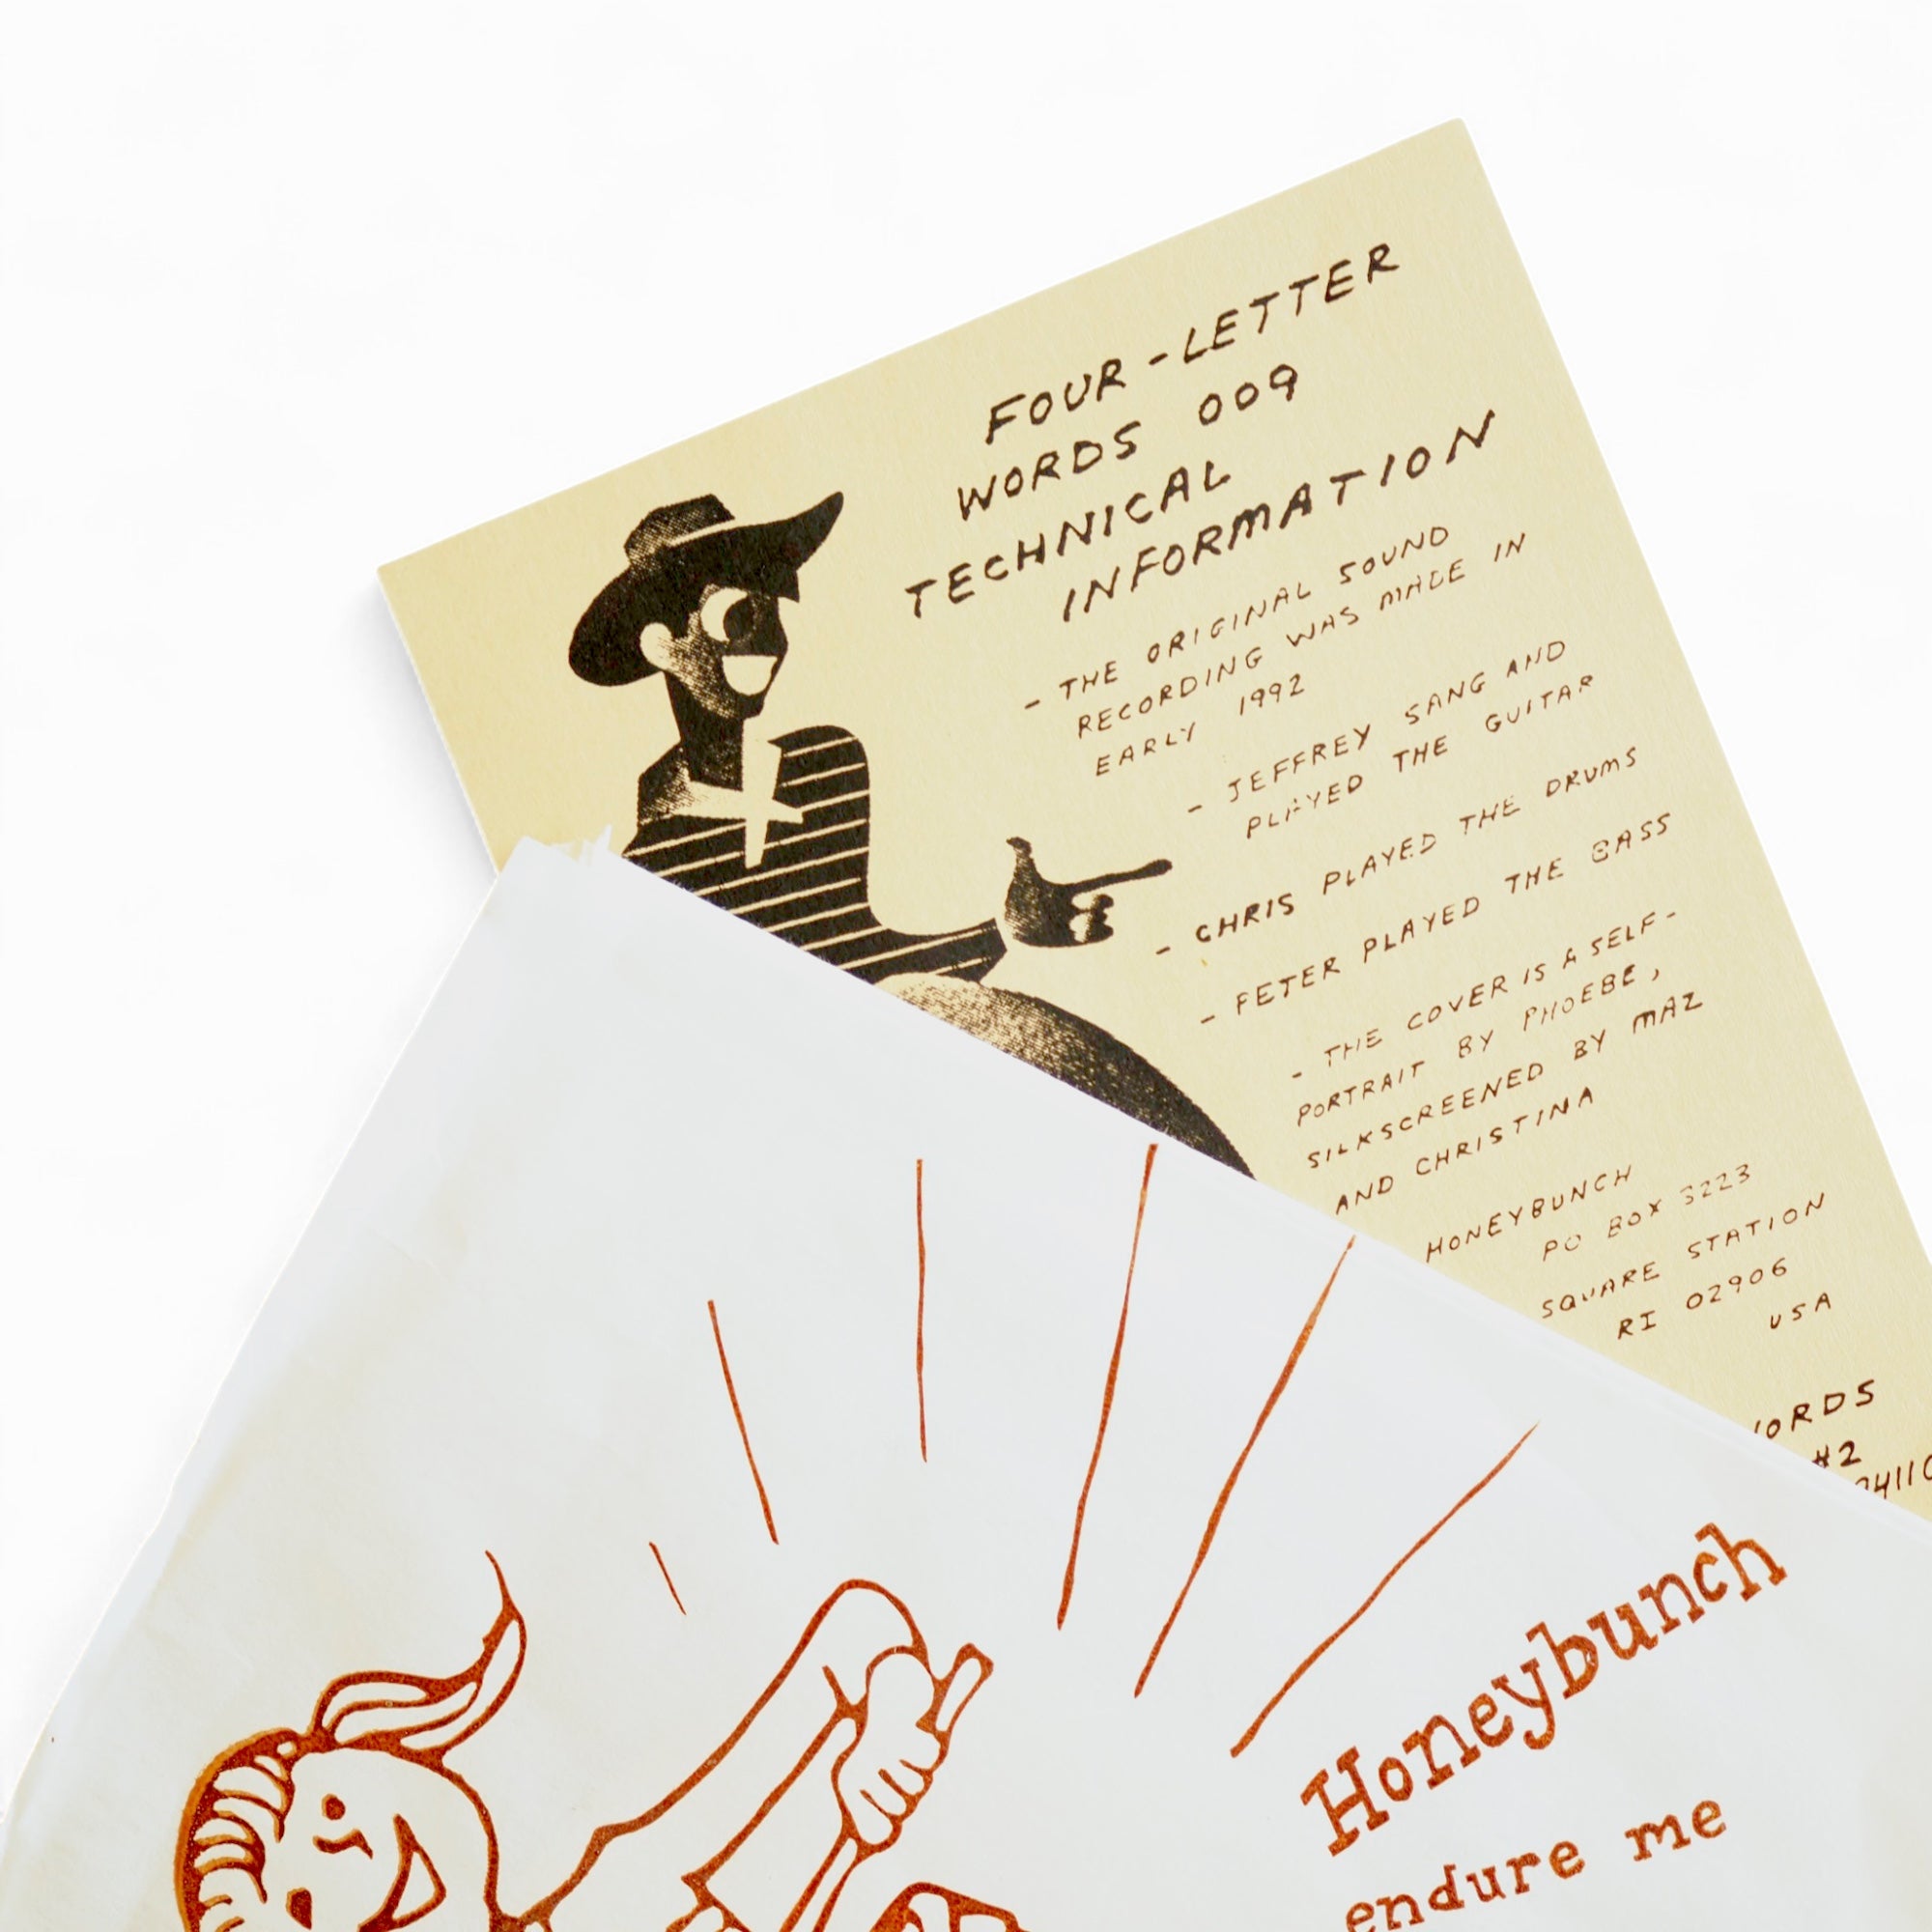 FOUR-LETTER
WORDS 009
TECHNICAL
INFORMATION
- THE ORIGINAL SOUND
RECORDING WAS MADE IN
EARLY 1992
- JEFFREY SANG AND
PLAYED THE GUITAR
- CHRIS PLAYED THE DRUMS
- PETER PLAYED THE BASS
- THE COVER IS A SELF-
PORTRAIT BY PHOEBE,
SILKSCREENED BY MAZ
AND CHRISTINA
HONEYBUNCH
PO BOX 3223
SQUARE STATION
RI 02906
USA
ORDS
#2
94110
Honeybunch
endure me